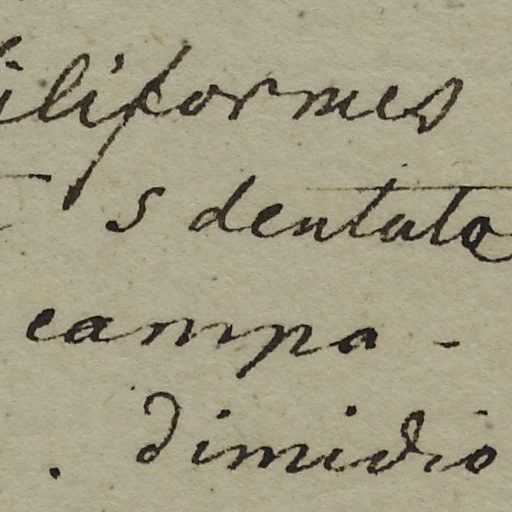 filiformes
5 dentato
campa-
. dimidio